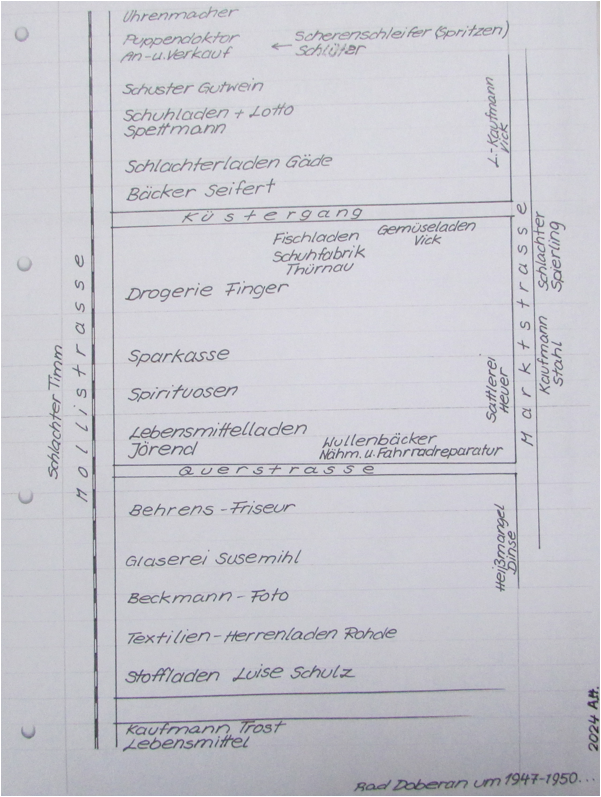 Uhrenmacher
Puppendoktor
An-u.Verkauf
← Scherenschleifer (Spritzen)
Schlüter
Schuster Gutwein
Schuhladen + Lotto
Spettmann
Schlachterladen Gäde
Bäcker Seifert
L.-Kaufmann
Vick
Küstergang
Fischladen
Schuhfabrik
Thürnau
Gemüseladen
Vick
Drogerie Finger
Sparkasse
Spirituosen
Lebensmittelladen
Jörend
Wullenbäcker
Nähm. u. Fahrradreparatur
Sattlerei
Heuer
Querstrasse
Behrens - Friseur
Glaserei Susemihl
Beckmann - Foto
Textilien-Herrenladen Rohde
Stoffladen Luise Schulz
Heißmangel
Dinse
Kaufmann Trost
Lebensmittel
Schlachter Timm
Mollistrasse
Marktstrasse
Schlachter
Spierling
Kaufmann
Stahl
2024 A.H.
Bad Doberan um 1947-1950...